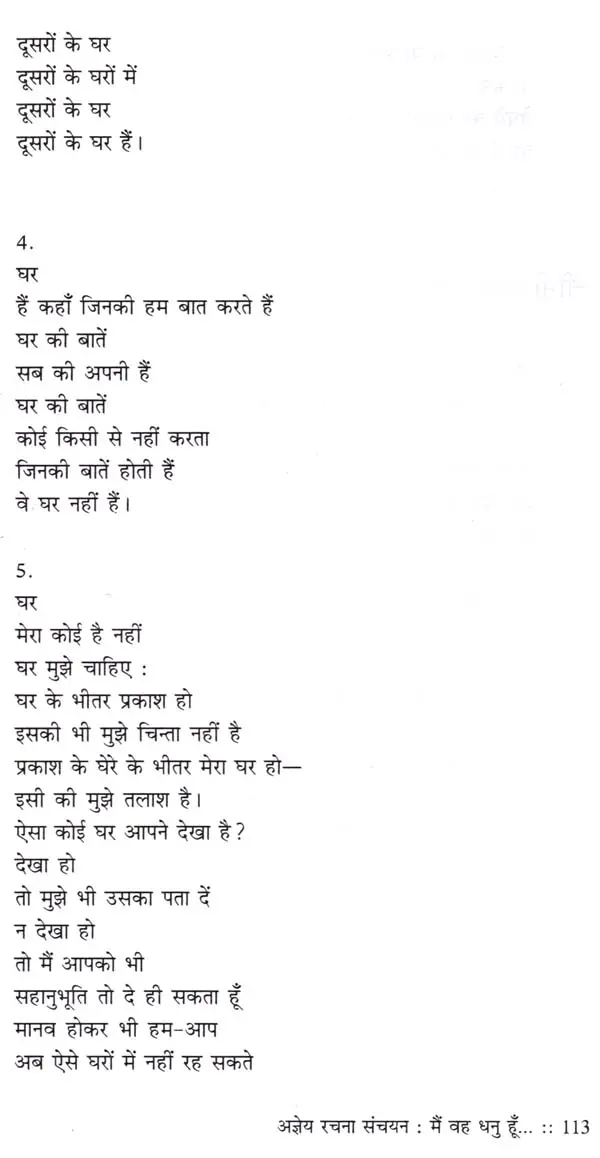 दूसरों के घर
दूसरों के घरों में
दूसरों के घर
दूसरों के घर हैं।
4.
घर
हैं कहाँ जिनकी हम बात करते हैं
घर की बातें
सब की अपनी हैं
घर की बातें
कोई किसी से नहीं करता
जिनकी बातें होती हैं
वे घर नहीं हैं।
5.
घर
मेरा कोई है नहीं
घर मुझे चाहिए :
घर के भीतर प्रकाश हो
इसकी भी मुझे चिन्ता नहीं है
प्रकाश के घेरे के भीतर मेरा घर हो—
इसी की मुझे तलाश है।
ऐसा कोई घर आपने देखा है?
देखा हो
तो मुझे भी उसका पता दें
न देखा हो
तो मैं आपको भी
सहानुभूति तो दे ही सकता हूँ
मानव होकर भी हम-आप
अब ऐसे घरों में नहीं रह सकते
अज्ञेय रचना संचयन : मैं वह धनु हूँ... :: 113